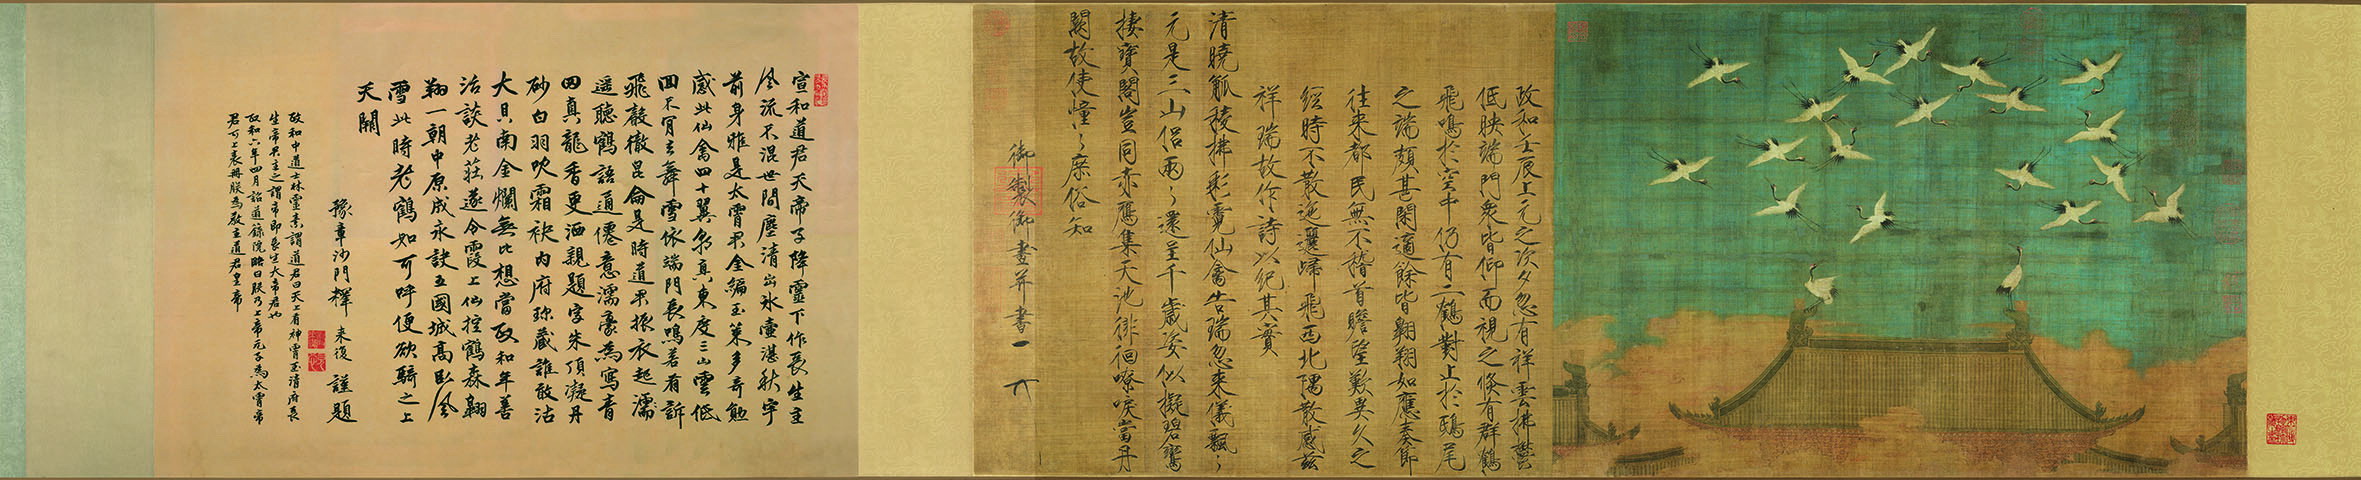 政和壬辰上元之次夕忽有祥雲拂鬱
低映端門眾皆仰而視之倏有群鶴
飛鳴於空中仍有二鶴對止於鴟尾
之端頗甚閑適餘皆翱翔如應奏節
往來都民無不稽首瞻望歎異久之
經時不散迤邐歸飛西北隅散感茲
祥瑞故作詩以紀其實
清曉觚稜拂彩霓仙禽告瑞忽來儀飄〻
元是三山侶兩〻還呈千歲姿似擬碧鸞
棲寶閣豈同赤鴈集天池徘徊嘹唳當丹
闕故使憧〻庶俗知
御製御畫并書
宣和道君天帝子降靈下作長生主
風流不混世間塵清出氷壺湛秋宇
前身雅是太霄君金編玉策多奇勳
感此仙禽四十翼朝真東度三山雲低
回不肯去舞雪依端門長鳴若有訴
飛聲徹昆侖是時道君振衣起
遥聽鶴語道僊意濡豪為寫青
田真龍香更洒親題字朱頂凝丹
砂白羽吹霜袂內府珎藏誰敢沽
大貝南金爛無比想當政和年善
治談老莊遂令霞上仙控鶴森翱
翔一朝中原成永訣五國城高臥風
雪此時老鶴如可呼便欲騎之上
天闕
豫章沙門釋來復謹題
政和中道士林靈素謂道君曰天上有神霄玉清府長
生帝君主之謂帝即長生大帝君也
政和六年四月詔道籙院略曰朕乃上帝元子為太霄帝
君可上表冊朕為教主道君皇帝